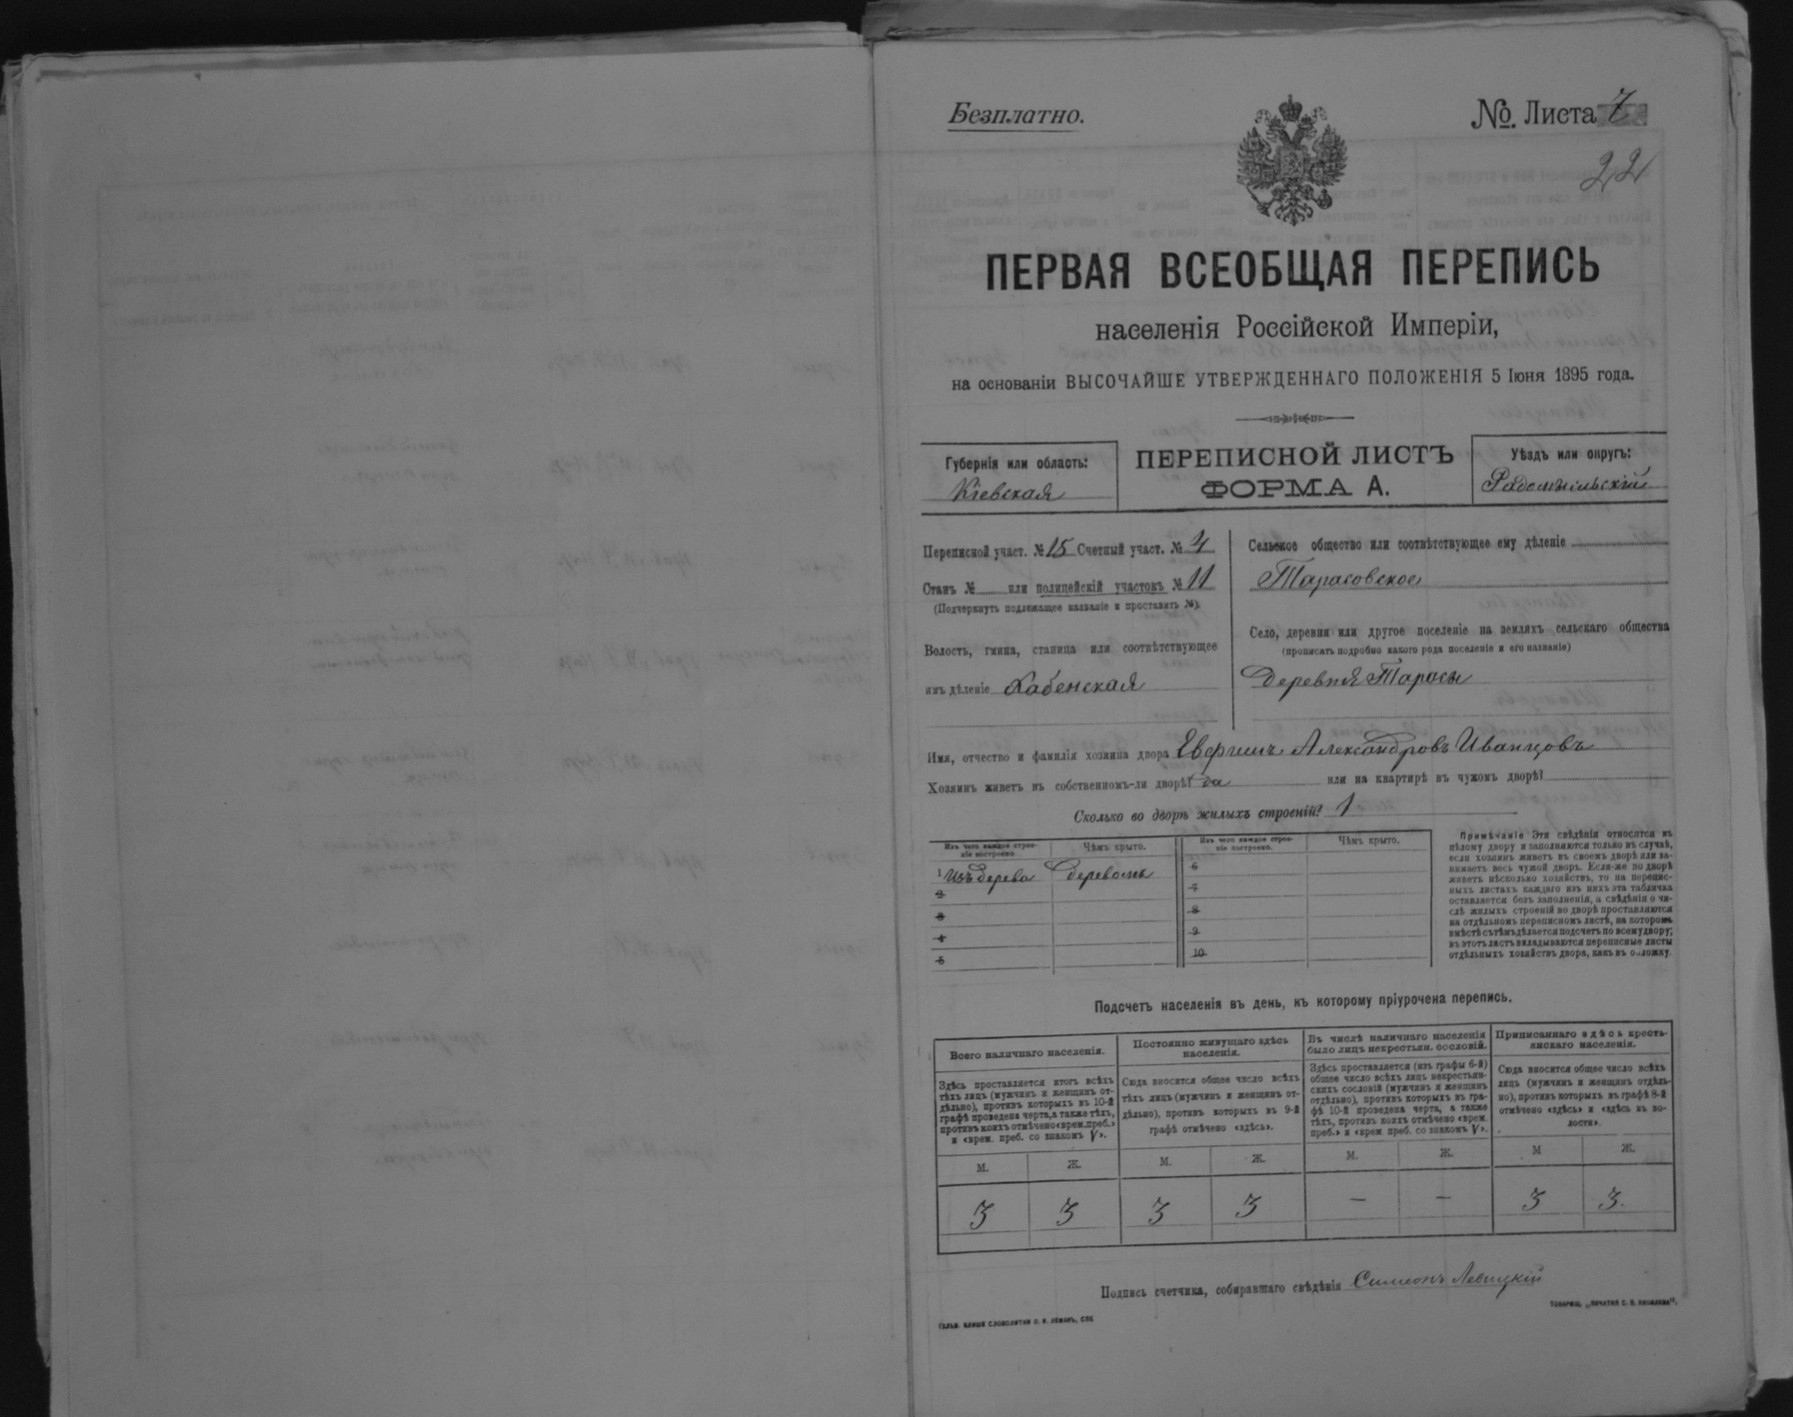 Безплатно.
№. Листа 7
22
ПЕРВАЯ ВСЕОБЩАЯ ПЕРЕПИСЬ
населенія Россійской Имперіи,
на основаніи ВЫСОЧАЙШЕ УТВЕРЖДЕННАГО ПОЛОЖЕНІЯ 5 Іюня 1895 года.
Губернія или область:
Кіевская
ПЕРЕПИСНОЙ ЛИСТЪ
ФОРМА А.
Уѣздъ или округъ:
Радомысльскій
Переписной участ. № 15 Счетный участ. № 4
Станъ № или полицейскій участокъ № 11
(Подчеркнуть подлежащее названіе и проставить №).
Волость, гмина, станица или соотвѣтствующее
имъ дѣленіе Хабенская
Сельское общество или соотвѣтствующее ему дѣленіе
Тарасовское
Село, деревня или другое поселеніе на земляхъ сельскаго общества
(прописать подробно какого рода поселеніе и его названіе)
Деревня Тарасы
Имя, отчество и фамилія хозяина двора Евфимъ Александровъ Иванцовъ
Хозяинъ живетъ въ собственномъ-ли дворѣ? да или на квартирѣ въ чужомъ дворѣ?
Сколько во дворѣ жилыхъ строеній? 1
Изъ чего каждое строе-
ніе построено.
Чѣмъ крыто.
Изъ чего каждое строе-
ніе построено.
Чѣмъ крыто.
1 Изъ дерева Деревомъ
2
3
4
5
6
7
8
9
10
Примѣчаніе Эти свѣдѣнія относятся къ
цѣлому двору и заполняются только въ случаѣ,
если хозяинъ живетъ въ своемъ дворѣ или за-
нимаетъ весь чужой дворъ. Если-же во дворѣ
живетъ нѣсколько хозяйствъ, то на перепис-
ныхъ листахъ каждаго изъ нихъ эта табличка
оставляется безъ заполненія, а свѣдѣнія о чи-
слѣ жилыхъ строеній во дворѣ проставляются
на отдѣльномъ переписномъ листѣ, на которомъ
вмѣстѣ съ тѣмъ дѣлается подсчетъ по всему двору;
въ этотъ листъ вкладываются переписные листы
отдѣльныхъ хозяйствъ двора, какъ въ обложку.
Подсчетъ населенія въ день, къ которому пріурочена перепись.
Всего наличнаго населенія.
Здѣсь проставляется итогъ всѣхъ
тѣхъ лицъ (мужчинъ и женщинъ от-
дѣльно), противъ которыхъ въ 10-й
графѣ проведена черта, а также тѣхъ,
противъ коихъ отмѣчено «врем. преб.»
и «врем. преб. со знакомъ V».
Постоянно живущаго здѣсь
населенія.
Сюда вносится общее число всѣхъ
тѣхъ лицъ (мужчинъ и женщинъ от-
дѣльно), противъ которыхъ въ 9-й
графѣ отмѣчено «здѣсь».
Въ числѣ наличнаго населенія
было лицъ некрестьян. сословій.
Здѣсь проставляется (изъ графы 6-й)
общее число всѣхъ лицъ некрестьян-
скихъ сословій (мужчинъ и женщинъ
отдѣльно), противъ которыхъ въ гра-
фѣ 10-й проведена черта, а также
тѣхъ, противъ коихъ отмѣчено «врем.
преб.» и «врем. преб. со знакомъ V».
Приписаннаго здѣсь кресть-
янскаго населенія.
Сюда вносится общее число всѣхъ
лицъ (мужчинъ и женщинъ отдѣль-
но), противъ которыхъ въ графѣ 8-й
отмѣчено «здѣсь» и «здѣсь въ во-
лости».
М. Ж. М. Ж. М. Ж. М Ж.
3 3 3 3 — — 3 3.
Подпись счетчика, собиравшаго свѣдѣнія Симеонъ Левицкій
ГАЛЬВ. КЛИШЕ СЛОВОЛИТНИ О. И. ЛЕМАНЪ, СПБ
ТОВАРИЩ. „ПЕЧАТНЯ С. П. ЯКОВЛЕВА“.